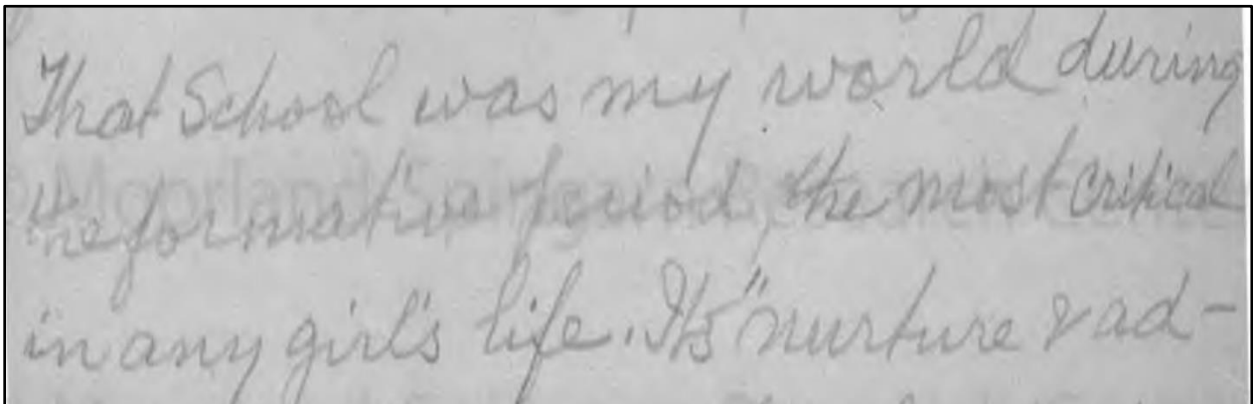 That School was my world during
the formative period, the most critical
in any girl's life. Its "nurture & ad-